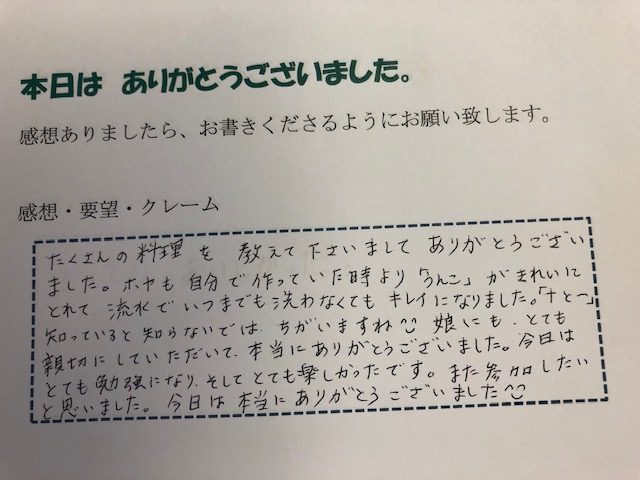 本日は ありがとうございました。
感想ありましたら、お書きくださるようにお願い致します。
感想・要望・クレーム
たくさんの料理を教えて下さいましてありがとうござい
ました。ホヤも自分で作っていた時より「うんこ」がきれいに
とれて、流水でいつまでも洗わなくてもキレイになりました。「ナとつ」
知っていると知らないでは、ちがいますね
娘にも、とても
親切にしていただいて、本当にありがとうございました。今日は
とても勉強になり、そしてとても楽しかったです。また参加したい
と思いました。今日は本当にありがとうございました